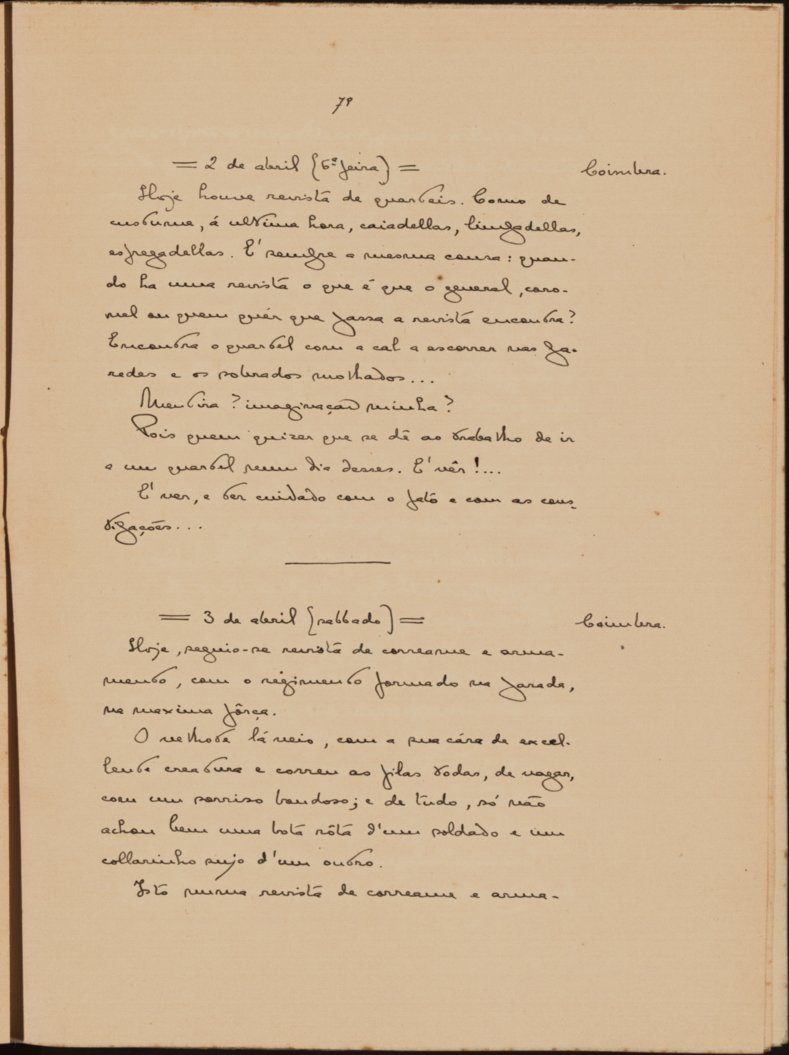 79
= 2 de abril {6ª feira} = Coimbra.
Hoje houve revista de quarteis. Como de
custume, á ultima hora, caiadellas, limpadellas,
esfregadellas. E' sempre a mesma cousa: quan-
do ha uma revista o que é que o general, coro-
nel ou quem quér que passa a revista encontra?
Encontra o quartel com a cal a escorrer nas pa-
redes e os sobrados molhados...
Mentira? imaginação minha?
Pois quem quizer que se dê ao trabalho de ir
a um quartel num dia desses. E' vêr!...
E' ver, e ter cuidado com o fato e com as cons-
tipações...
= 3 de abril {sabbado} = Coimbra.
Hoje, seguio-se revista de correame e arma-
mento, com o régimento formado na parada,
na maxima fôrça.
O velhote lá veio, com a sua cára de excel-
lente creatura e correu as filas todas, de vagar,
com um sorriso bondoso; e de tudo, só não
achou bem uma bota rôta d'um soldado e um
collarinho sujo d'um outro.
Isto numa revista de correame e arma-